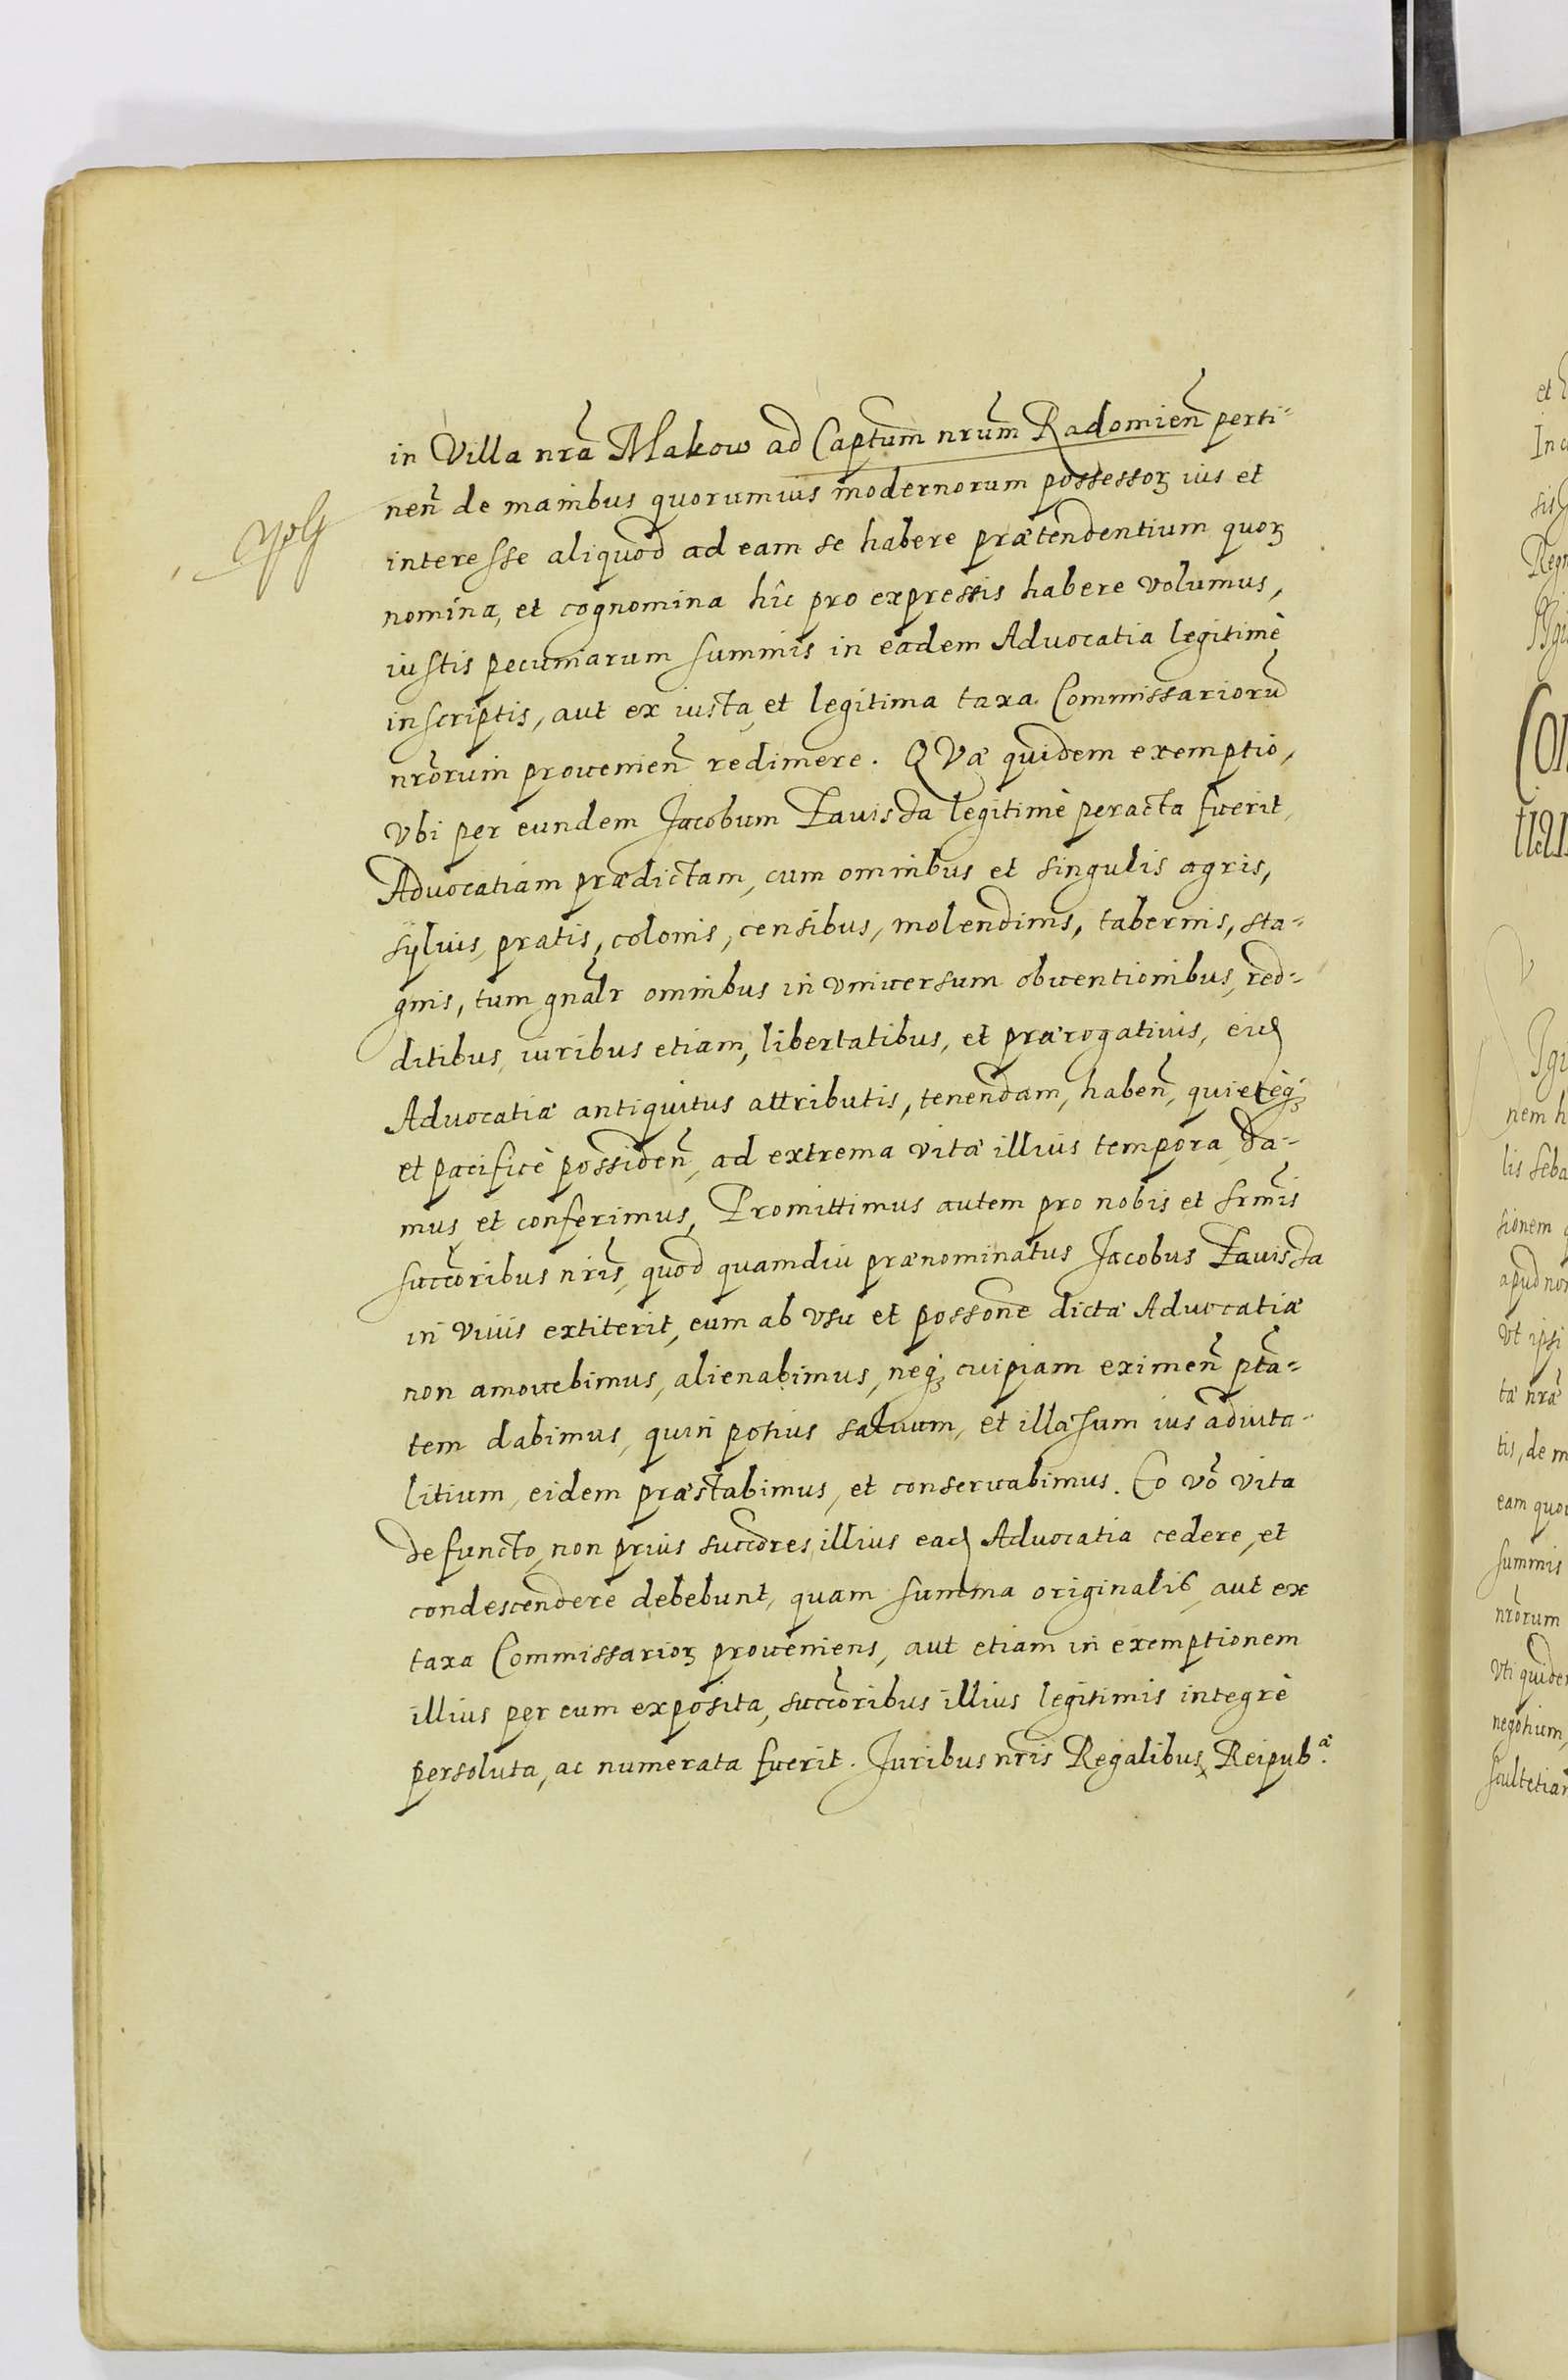 in Villa nrã Makow ad Captum nrum Radomien̄ perti=
nen̄ de manibus quorumuis modernorum possessoꝝ ius et
interesse aliquod ad eam se habere prætendentium quoꝝ
nomina, et cognomina hîc pro expressis habere volumus,
iustis pecuniarum summis in eadem Advocatia legitimè
inscriptis, aut ex iusta et legitima taxa Commissariorũ
nrõrum prouenien̄ redimere. QVæ quidem exemptio,
Vbi per eundem Jacobum Zauisda legitimè peracta fuerit,
Advocatiam prædictam, cum omnibus et singulis agris,
syluis, pratis, colonis, censibus, molendinis, tabernis, sta=
gnis, tum gnãlr omnibus in vniuersum obuentionibus, red=
ditibus, iuribus etiam, libertatibus, et prærogatiuis, eid
Advocatiæ antiquitus attributis, tenendam, haben̄, quietèqꝫ
et pacificè possiden̄, ad extrema vitæ illius tempora, da=
mus et conferimus, Promittimus autem pro nobis et Srm̃is
succõribus nris̃, quod quamdiu prænominatus Jacobus Zauisda
in viuis extiterit, eum ab vsu et possone dictæ Advocatiæ
non amouebimus, alienabimus, neqꝫ cuipiam eximen̄ ptã=
tem dabimus, quin potius saluum, et illæsum ius aduita=
litium, eidem præstabimus, et conseruabimus. Eo võ vita
defuncto, non prius succores illius ead Advocatia cedere, et
condescendere debebunt, quam summa originalis, aut ex
taxa Commissarioꝝ proueniens, aut etiam in exemptionem
illius per eum exposita, succõribus illius legitimis integrè
persoluta, ac numerata fuerit. Juribus nris̃ Regalibus, Reipub.æ
et
In
sis
Regn
nem h
lis Seba
sionem
apud no
vt ipsi
tæ nræ
tis, de m
eam quo
summis
nrõrum
vti quide
negotium,
scultetia